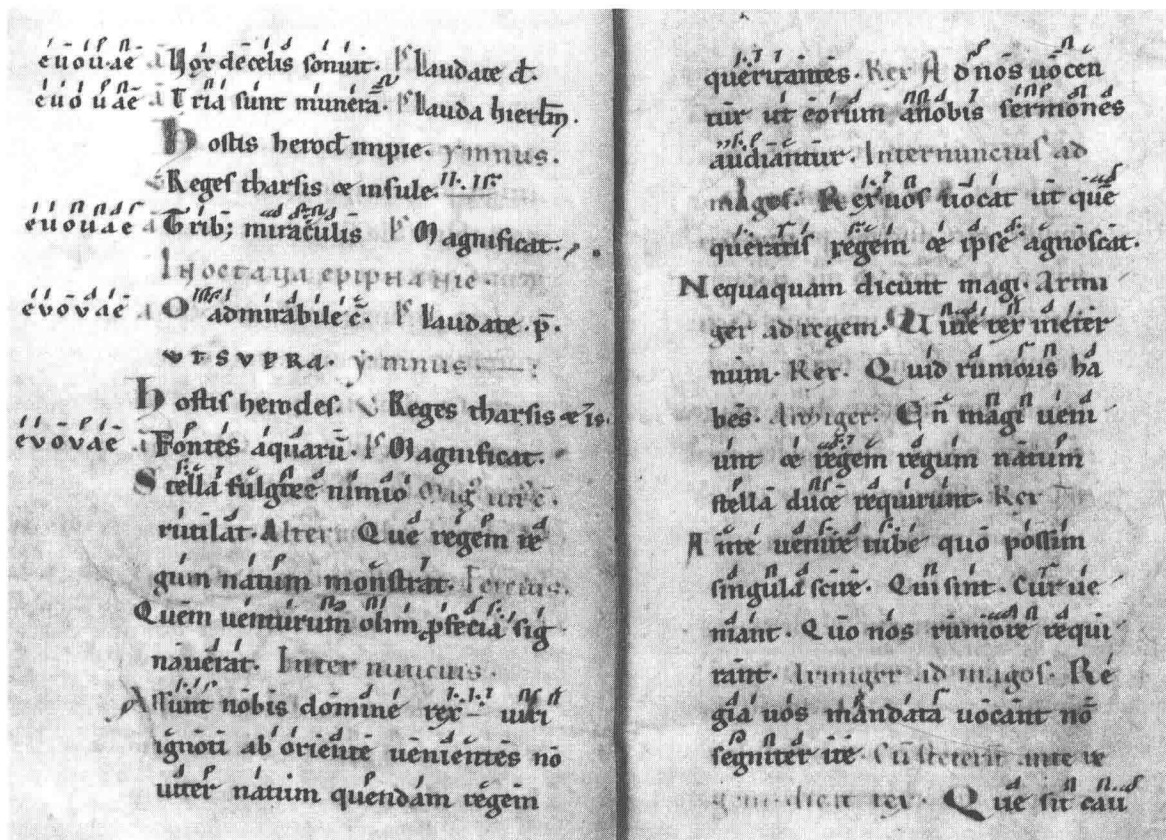 euouae a Vox de celis sonuit. ps laudate d.
euouae a Tria sunt munera. ps lauda hierlm.
Hostis herod impie. ymnus.
v Reges tharsis & insule.
euouae a Trib; miraculis ps Magnificat.
In octava epiphanie.
evovae a O admirabile ē. ps laudate. p̄.
VT SVPRA. ymnus
Hostis herodes. v Reges tharsis & is.
evovae a Fontes aquarū. ps Magnificat.
Stella fulgore nimio
rutilat. Alter. Que regem re
gum natum monstrat. Tercius.
Quem uenturum olim p̱fecia sig
nauerat. Internuncius.
Assunt nobis domine rex uiri
ignoti ab oriente uenientes no
uiter natum quendam regem
queritantes. Rex Ad nos uocen
tur ut eorum anobis sermones
audiantur. Internuncius ad
magos. Rex uos uocat ut que
queratis regem & ipse agnoscat.
Nequaquam dicunt magi. Armi
ger ad regem. Uiue rex in eter
num. Rex. Quid rumoris ha
bes. Armiger. En magi ueni
unt & regem regum natum
stella duce requirunt. Rex
Ante uenire iube quo possim
singula scire. Qui sint. Cur ue
niant. Quo nos rumore requi
rant. Armiger ad magos. Re
gia uos mandata uocant nō
segniter ite. Cū steterit ante re
gem dicat rex. Que sit cau